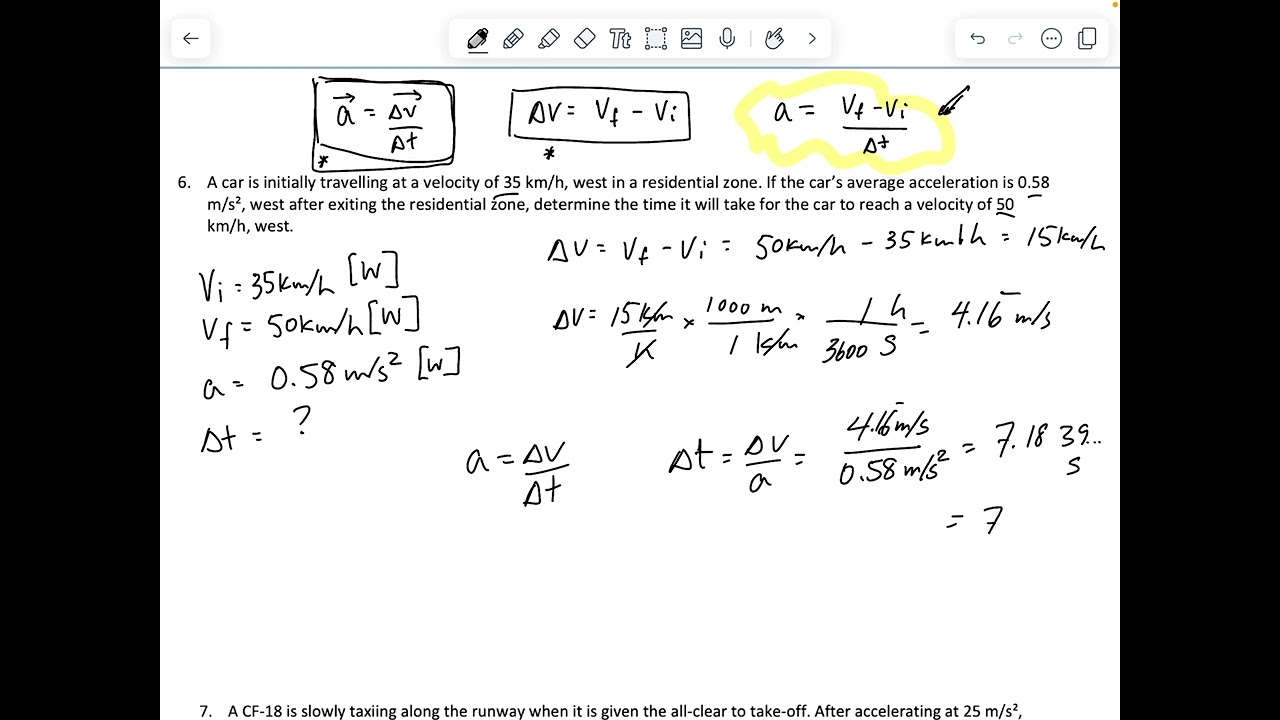 Tt
a = Δv/Δt
*
ΔV = Vf - Vi
*
a = Vf - Vi / Δt
6. A car is initially travelling at a velocity of 35 km/h, west in a residential zone. If the car's average acceleration is 0.58
m/s², west after exiting the residential zone, determine the time it will take for the car to reach a velocity of 50
km/h, west.
ΔV = Vf - Vi = 50km/h - 35km/h = 15km/h
Vi = 35km/h [W]
Vf = 50km/h [W]
a = 0.58 m/s² [W]
Δt = ?
ΔV = 15km/h × 1000 m/1 km × 1 h/3600 s = 4.16̅ m/s
a = ΔV/Δt
Δt = ΔV/a = 4.16̅ m/s / 0.58 m/s² = 7.1839... s
= 7
7. A CF-18 is slowly taxiing along the runway when it is given the all-clear to take-off. After accelerating at 25 m/s²,